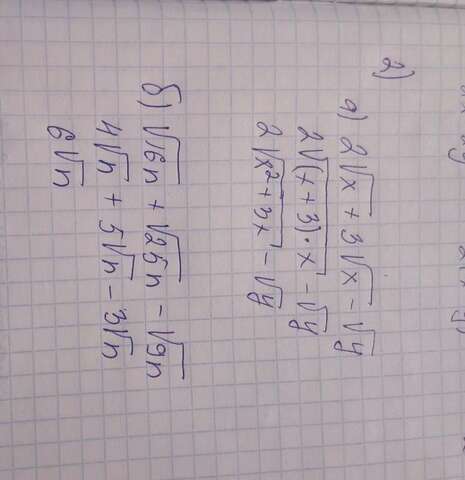 2)
а) 2√x + 3√x - √y
2√(x + 3) · x - √y
2√x² + 3x - √y
б) √16n + √25n - √9n
4√n + 5√n - 3√n
6√n